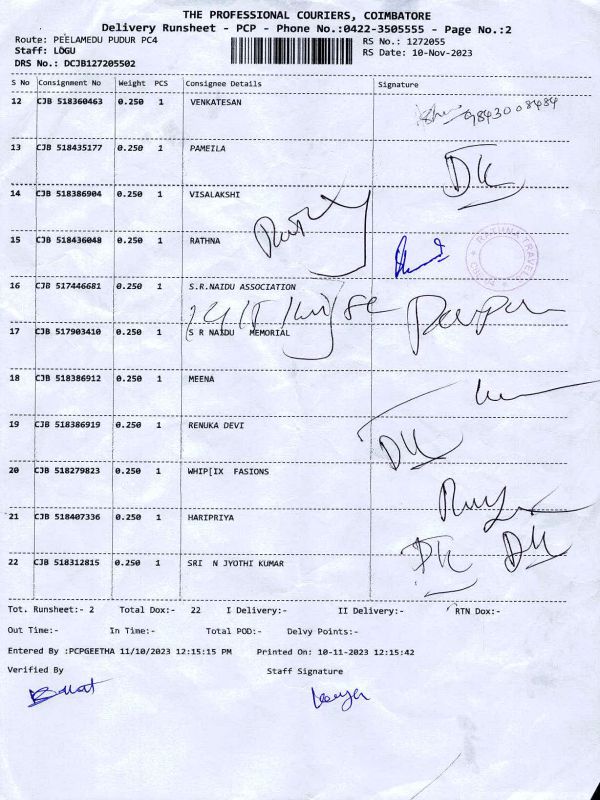 THE PROFESSIONAL COURIERS, COIMBATORE
Delivery Runsheet - PCP - Phone No.:0422-3505555 - Page No.:2
Route: PEELAMEDU PUDUR PC4
RS No.: 1272055
Staff: LOGU
RS Date: 10-Nov-2023
DRS No.: DCJB127205502
S No Consignment No Weight PCS Consignee Details Signature
12 CJB 518360463 0.250 1 VENKATESAN
9843008484
13 CJB 518435177 0.250 1 PAMEILA
DK
14 CJB 518386904 0.250 1 VISALAKSHI
15 CJB 518436048 0.250 1 RATHNA
16 CJB 517446681 0.250 1 S.R.NAIDU ASSOCIATION
17 CJB 517903410 0.250 1 S R NAIDU MEMORIAL
18 CJB 518386912 0.250 1 MEENA
19 CJB 518386919 0.250 1 RENUKA DEVI
DK
20 CJB 518279823 0.250 1 WHIP[IX FASIONS
21 CJB 518407336 0.250 1 HARIPRIYA
DK DK
22 CJB 518312815 0.250 1 SRI N JYOTHI KUMAR
Tot. Runsheet:- 2 Total Dox:- 22 I Delivery:- II Delivery:- RTN Dox:-
Out Time:- In Time:- Total POD:- Delvy Points:-
Entered By :PCPGEETHA 11/10/2023 12:15:15 PM Printed On: 10-11-2023 12:15:42
Verified By Staff Signature